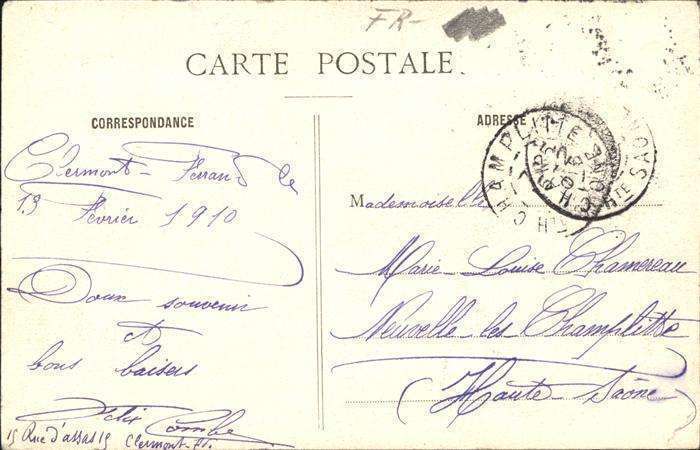 FR-
CARTE POSTALE
CORRESPONDANCE
Clermont-Ferrand le
13 Février 1910
Doux souvenir
et
bons baisers
Félix Combe
15 Rue d'assas 15 Clermont-Fd.
ADRESSE
Mademoiselle
Marie Louise Chamereau
Neuvelle les Champlitte
(Haute Saône)
CHAMPLITTE
HTE SAONE